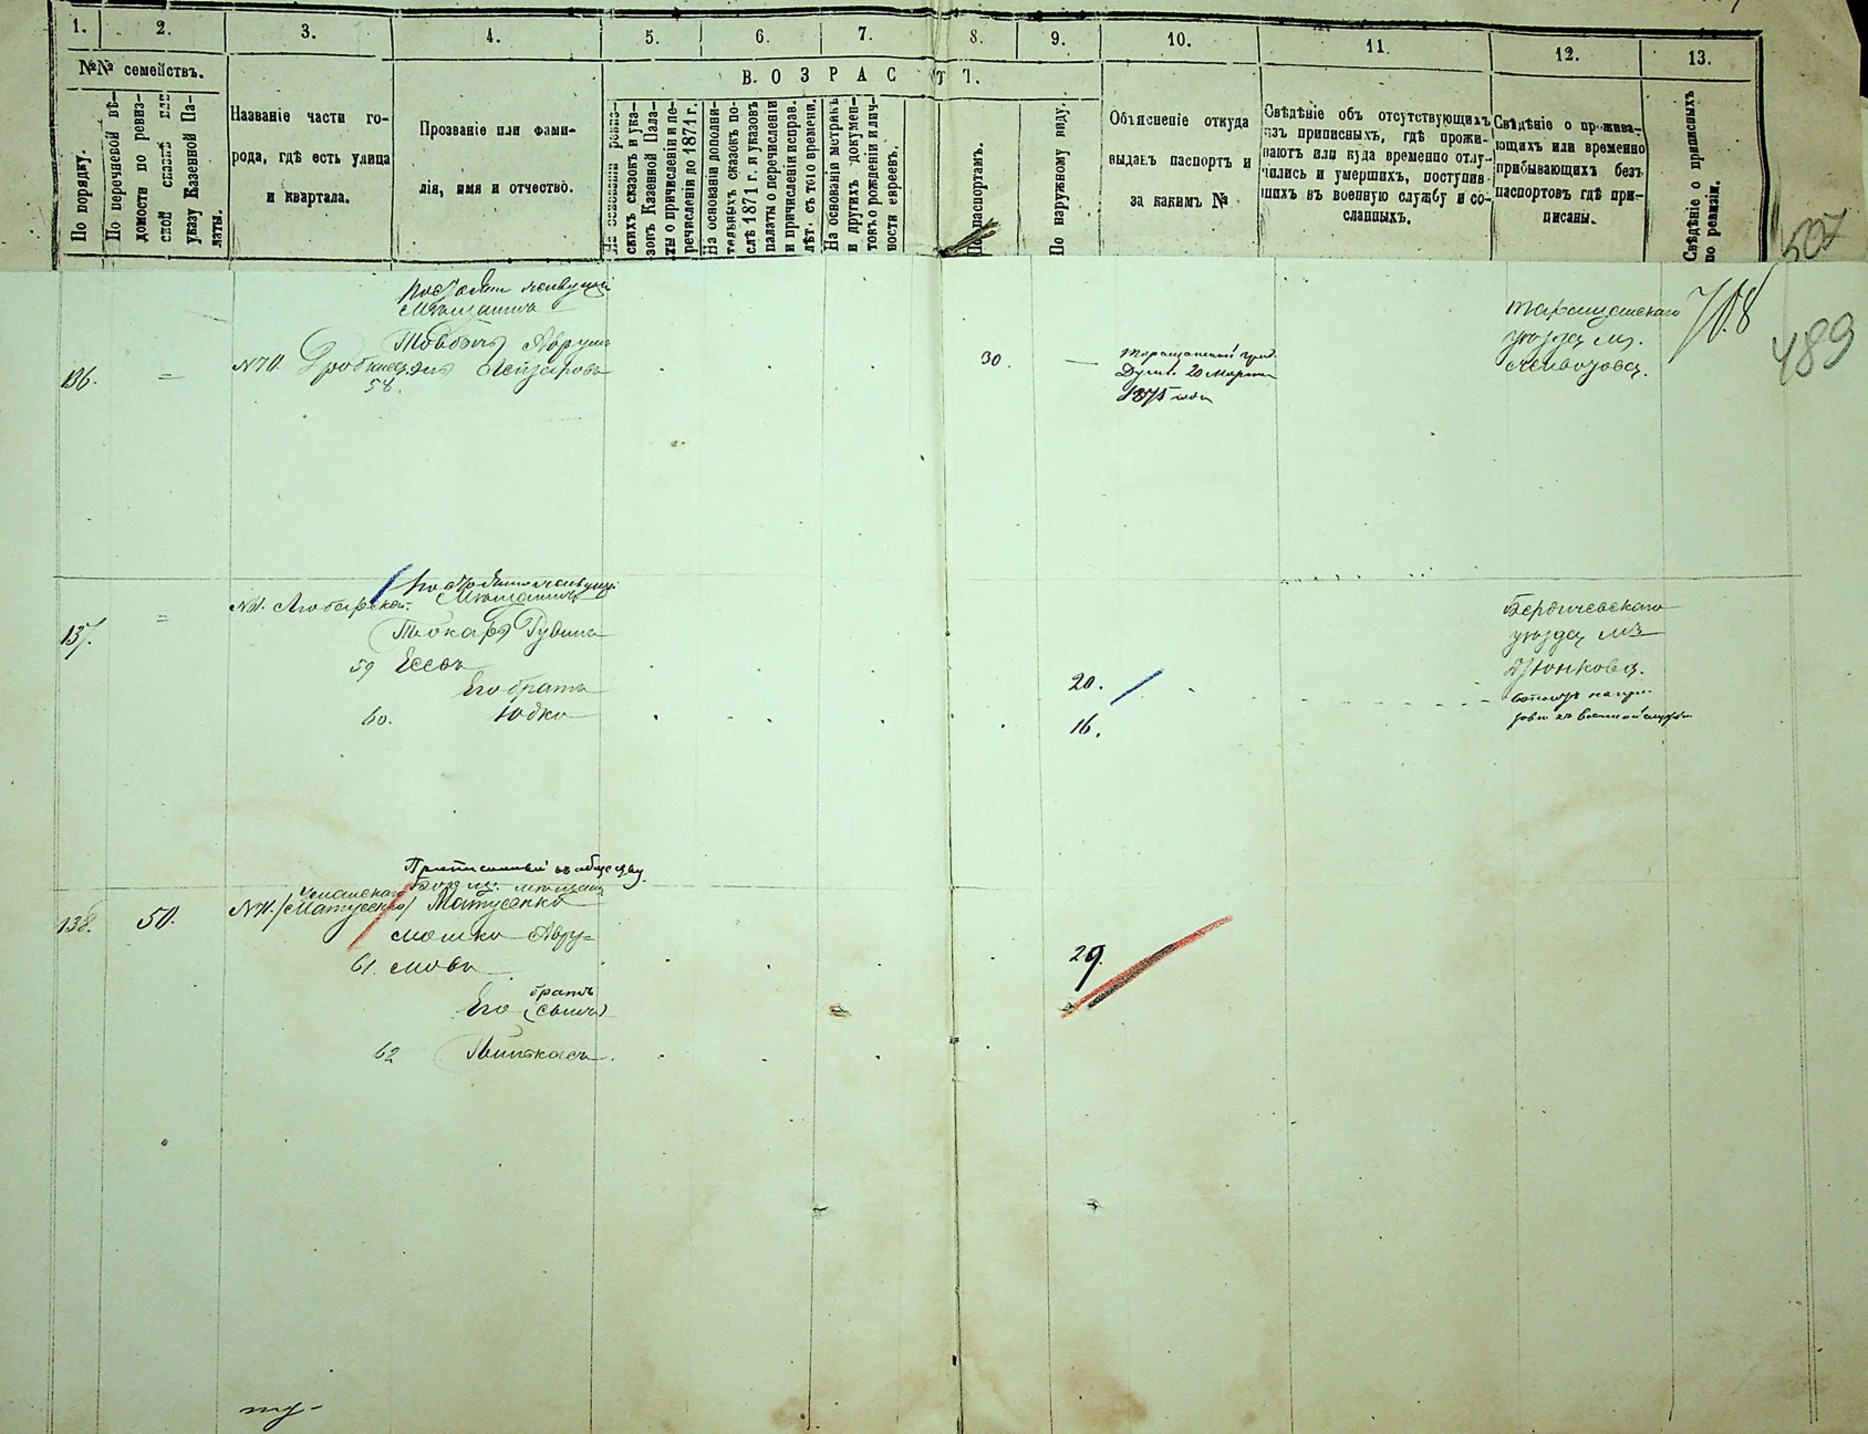 1. 2. 3. 4. 5. 6. 7. 8. 9. 10. 11. 12. 13.
№№ семействъ.
В О З Р А С Т Ъ.
По порядку.
По перечневой вѣ-
домости по ревиз-
ской сказкѣ или
указу Казенной Па-
латы.
Названіе части го-
рода, гдѣ есть улица
и квартала.
Прозваніе или фами-
лія, имя и отчество.
На основаніи ревиз-
скихъ сказокъ и ука-
зовъ Казенной Пала-
ты о причисленіи и пе-
речисленіи до 1871 г.
На основаніи дополни-
тельныхъ сказокъ по-
слѣ 1871 г. и указовъ
палаты о перечисленіи
и причисленіи исправ.
лѣт. съ того времени.
На основаніи метрикъ
и другихъ докумен-
товъ о рожденіи и лич-
ности евреевъ.
По паспортамъ.
По наружному виду.
Объясненіе откуда
выданъ паспортъ и
за какимъ №
Свѣдѣніе объ отсутствующихъ
изъ приписныхъ, гдѣ прожи-
ваютъ или куда временно отлу-
чились и умершихъ, поступив-
шихъ въ военную службу и со-
сланныхъ.
Свѣдѣніе о прожива-
ющихъ или временно
прибывающихъ безъ
паспортовъ гдѣ при-
писаны.
Свѣдѣніе о приписныхъ
по ревизіи.
507
489
136.
№70.
Мѣщанинъ
Аврумъ
Лейзеровъ
58.
30.
Таращанской град.
Думы. 20 Марта
1875 года
Таращанскаго
уѣзда м.
137.
№71. Любарской.
Мѣщанинъ
Токарь Рувинъ
59
Его братъ
60. Юдко
20.
16.
Бердичевскаго
уѣзда м.
138. 50.
Приписанный къ обществу
№71. (Матусенко) Матусенко
Мошко Авру=
61. мовъ
братъ
Его (сынъ)
62 Пинкасъ.
29.